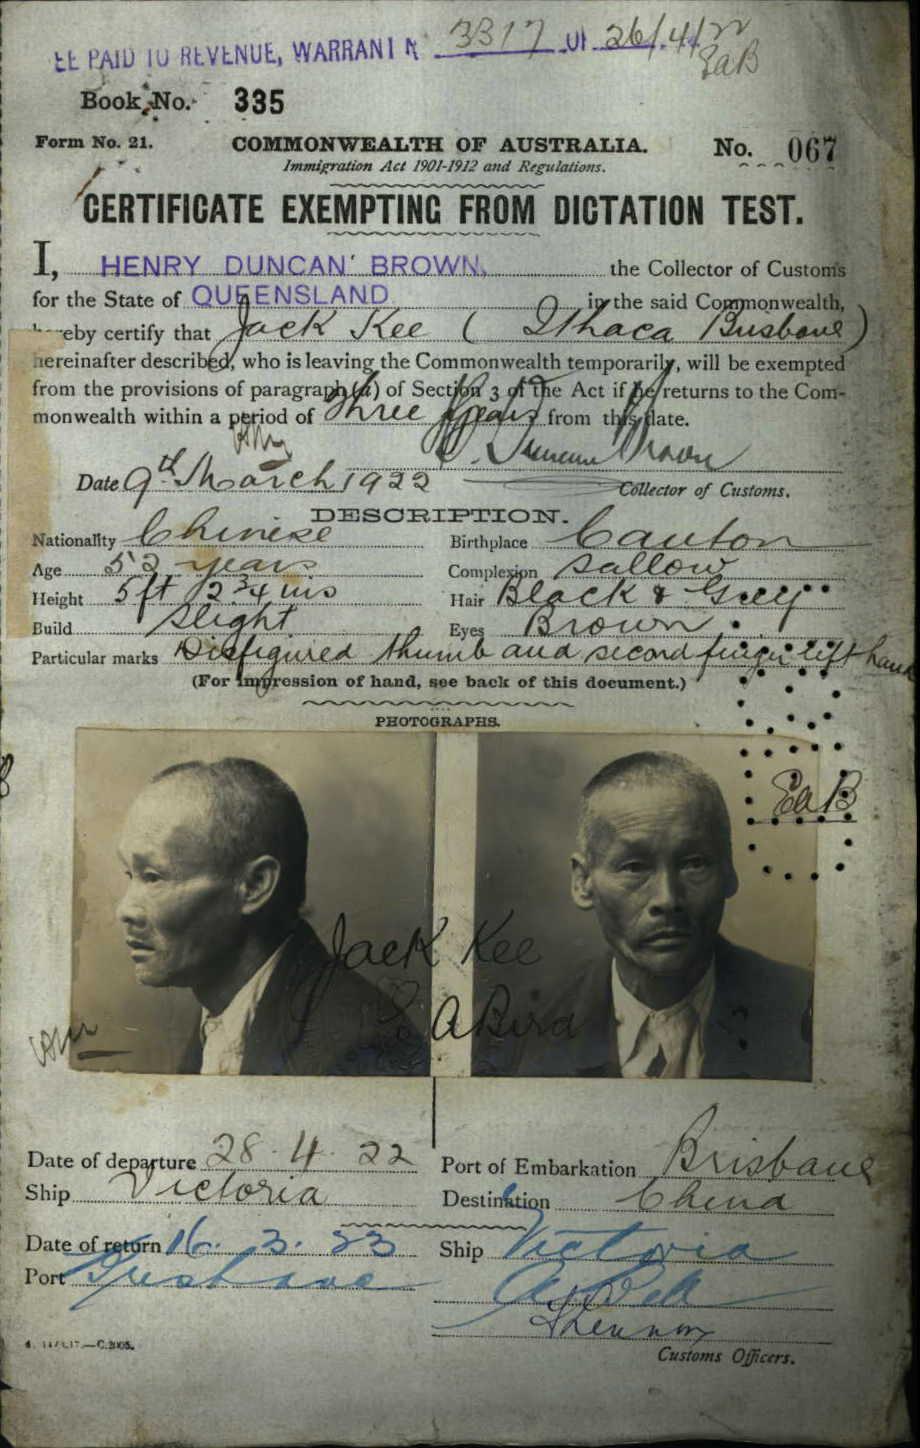 EE PAID TO REVENUE, WARRANT N 3317 of 26/4/22
EaB
Book No. 335
Form No. 21. COMMONWEALTH OF AUSTRALIA. No. 067
Immigration Act 1901-1912 and Regulations.
CERTIFICATE EXEMPTING FROM DICTATION TEST.
I, HENRY DUNCAN BROWN, the Collector of Customs
for the State of QUEENSLAND in the said Commonwealth,
hereby certify that Jack Kee ( Ithaca Brisbane )
hereinafter described, who is leaving the Commonwealth temporarily, will be exempted
from the provisions of paragraph (a) of Section 3 of the Act if he returns to the Com-
monwealth within a period of three years from this date.
H. Duncan Brown
Date 9th March 1922 Collector of Customs.
DESCRIPTION.
Nationality Chinese Birthplace Canton
Age 52 years Complexion Sallow
Height 5ft 2 3/4 ins Hair Black & Grey
Build Slight Eyes Brown
Particular marks Disfigured thumb and second finger left hand
(For impression of hand, see back of this document.)
PHOTOGRAPHS.
EaB
Jack Kee
E A Bird
Date of departure 28. 4. 22 Port of Embarkation Brisbane
Ship Victoria Destination China
Date of return 16. 3. 23 Ship Victoria
Port Brisbane
Customs Officers.
C.2005.